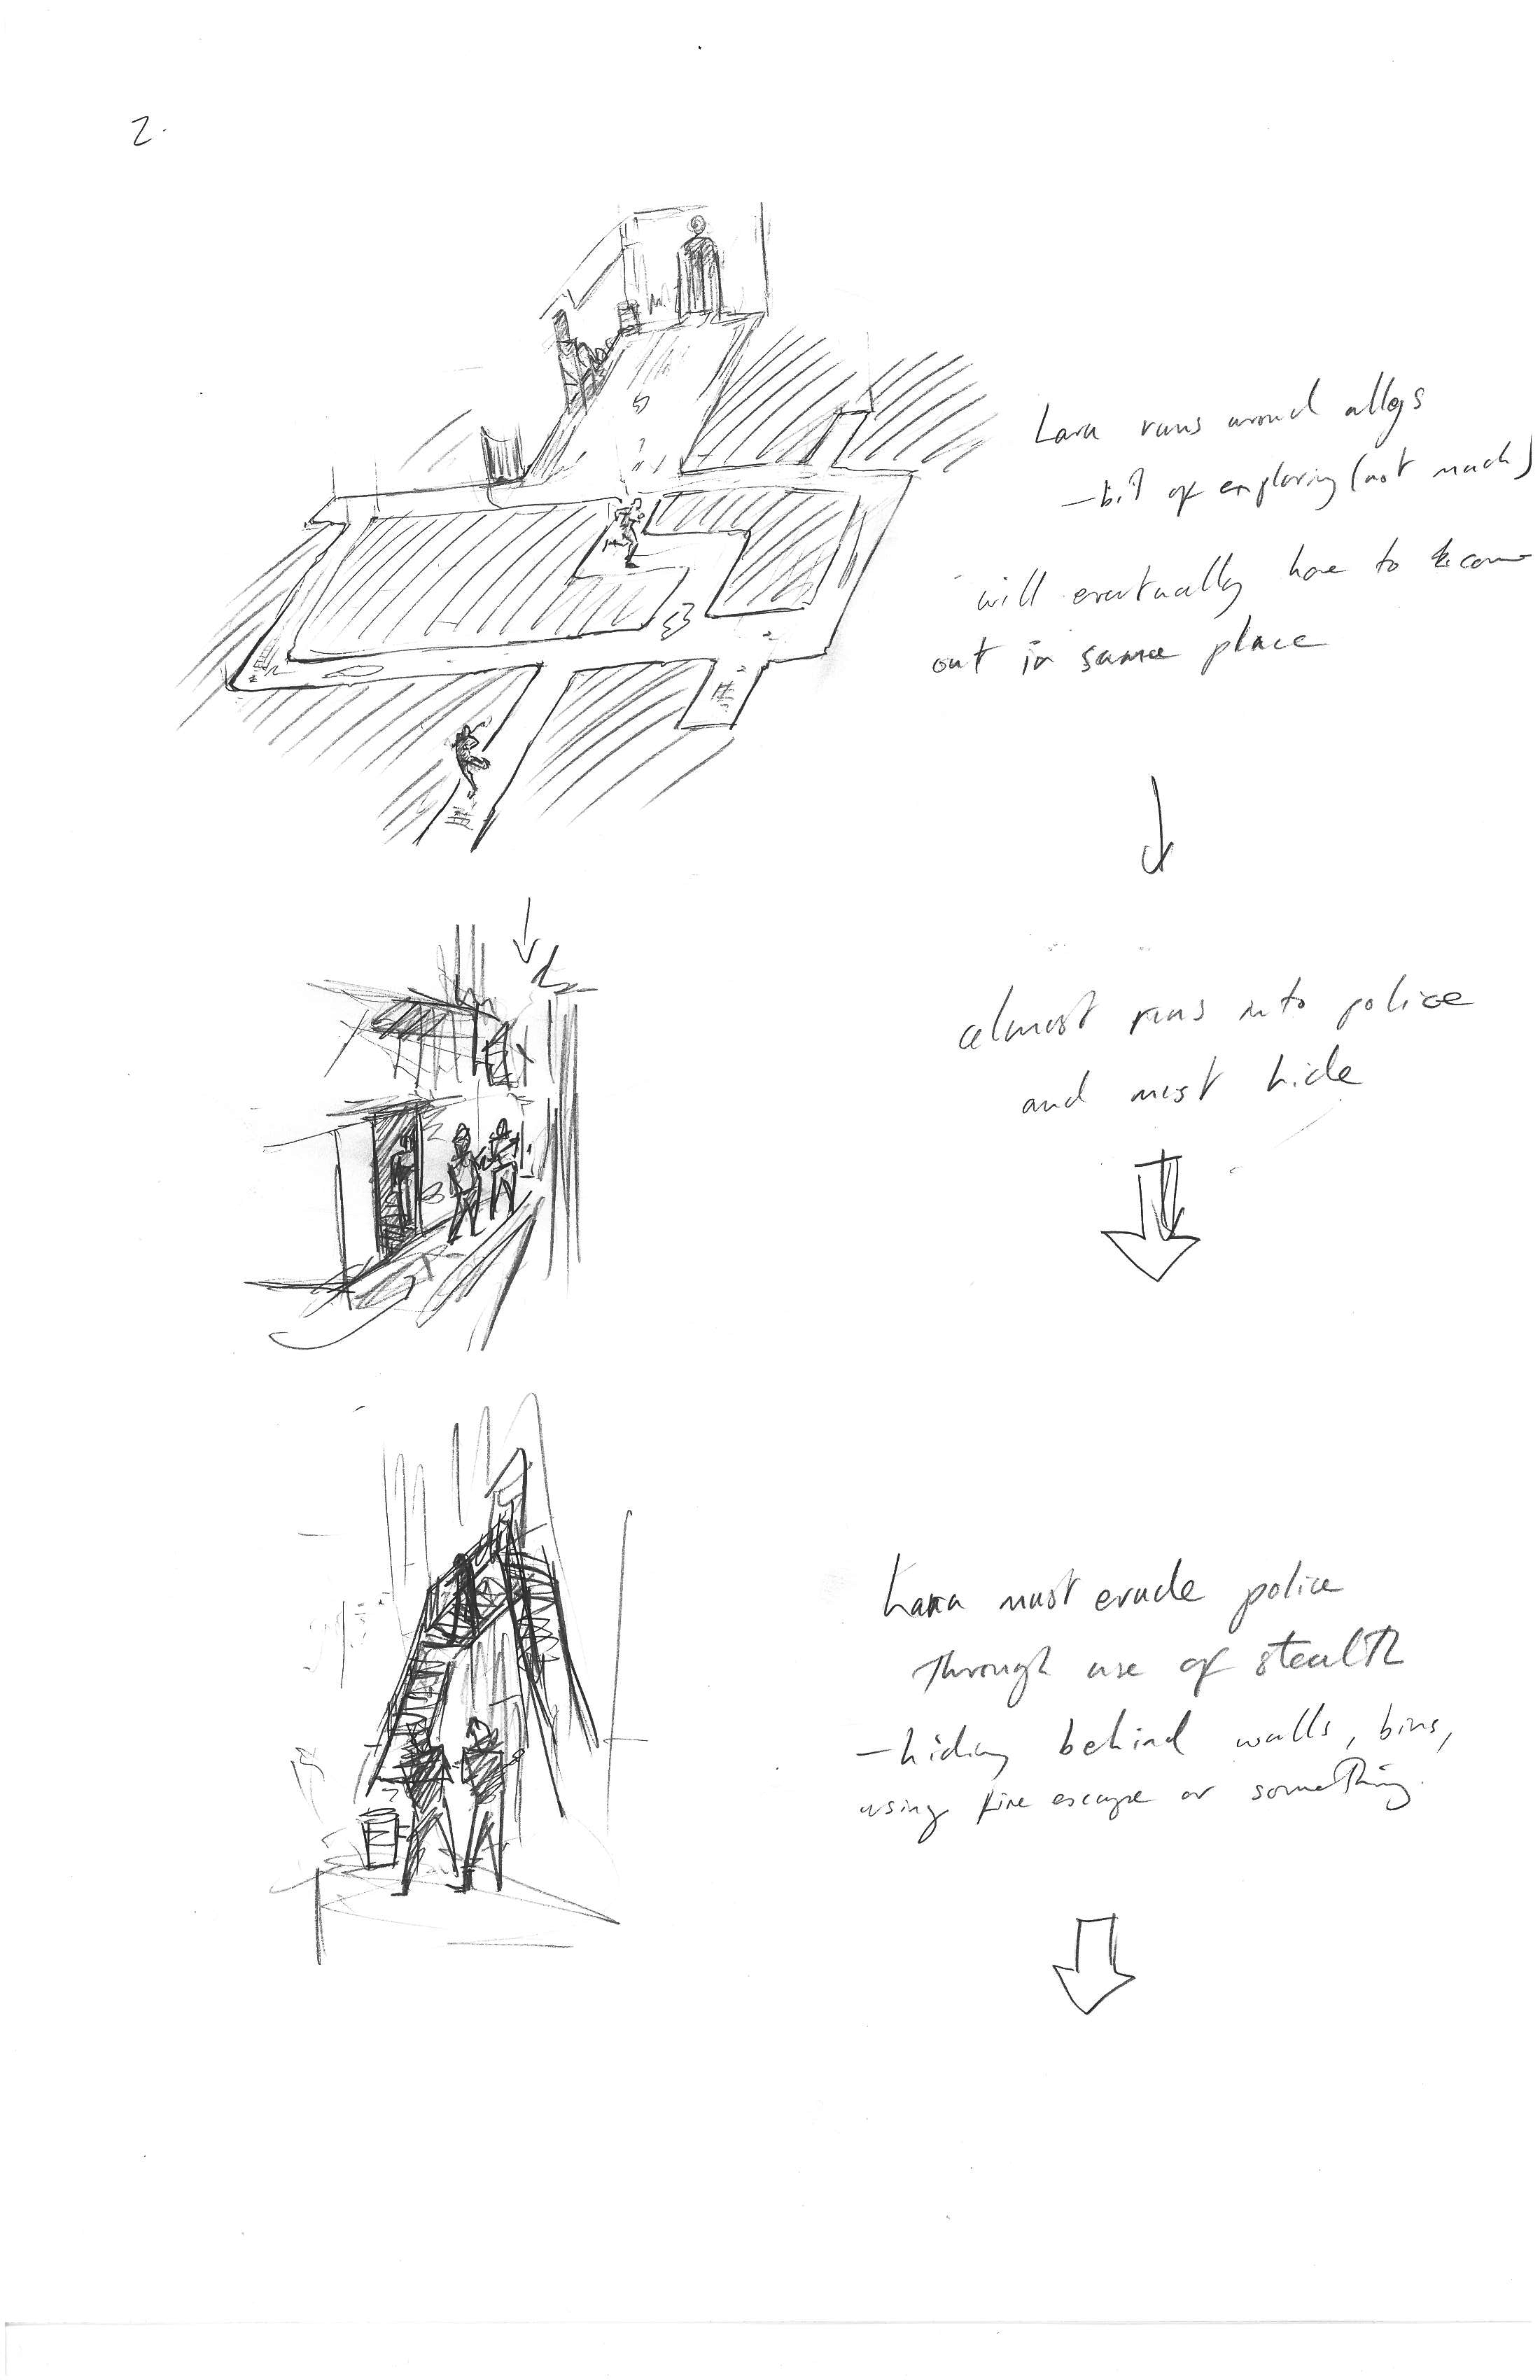 2.
Lara runs around alleys
- bit of exploring (not much)
will eventually have to come
out in same place
almost runs into police
and must hide
Lara must evade police
Through use of stealth
- hiding behind walls, bins,
using fire escape or something.